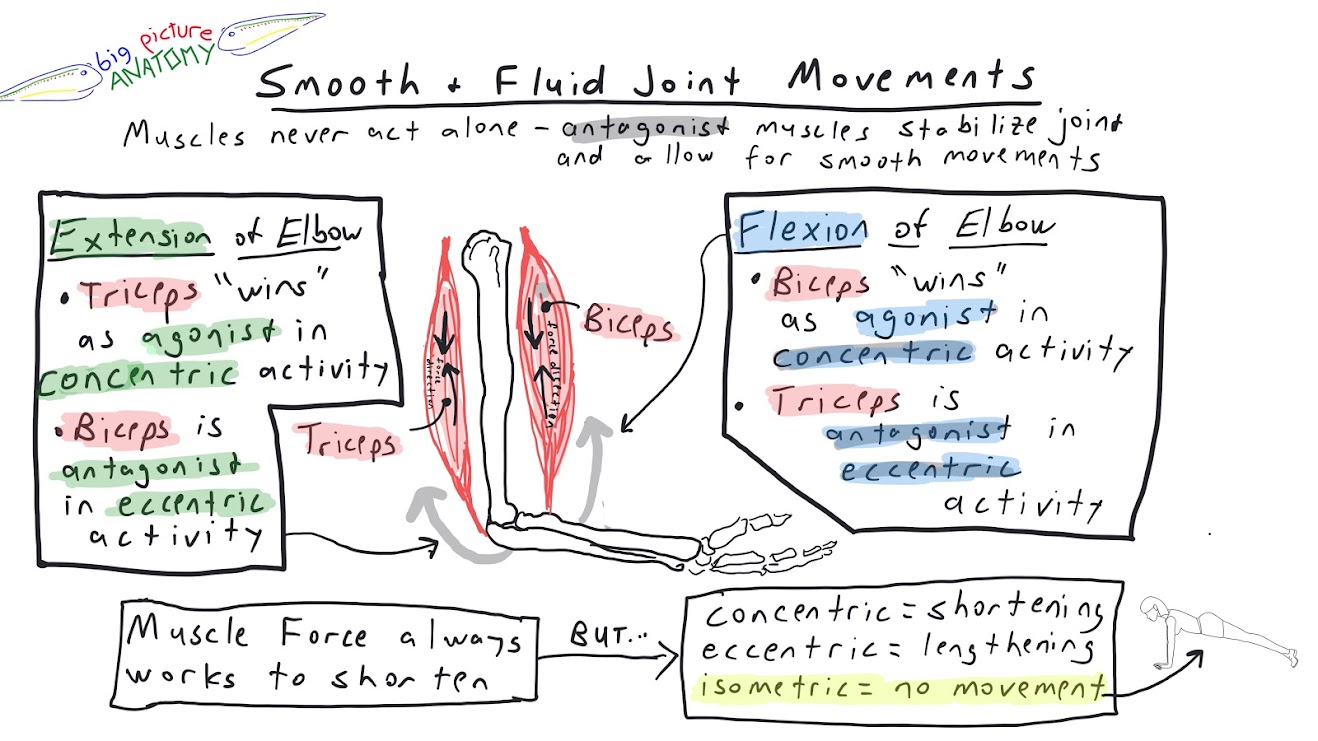 big picture
ANATOMY
Smooth + Fluid Joint Movements
Muscles never act alone - antagonist muscles stabilize joint
and allow for smooth movements
Extension of Elbow
• Triceps "wins"
as agonist in
concentric activity
• Biceps is
antagonist
in eccentric
activity
Triceps
force
direction
Biceps
force direction
Flexion of Elbow
• Biceps "wins"
as agonist in
concentric activity
• Triceps is
antagonist in
eccentric
activity
Muscle Force always
works to shorten
BUT...
concentric = shortening
eccentric = lengthening
isometric = no movement